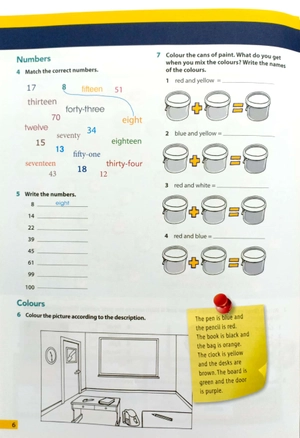 Numbers
4 Match the correct numbers.
17 8 fifteen 51
thirteen forty-three
70 eight
twelve 34
seventy
15 eighteen
13 fifty-one
seventeen 18 thirty-four
43 12
5 Write the numbers.
8 eight
14
22
39
45
61
99
100
Colours
6 Colour the picture according to the description.
7 Colour the cans of paint. What do you get
when you mix the colours? Write the names
of the colours.
1 red and yellow =
2 blue and yellow =
3 red and white =
4 red and blue =
The pen is blue and
the pencil is red.
The book is black and
the bag is orange.
The clock is yellow
and the desks are
brown. The board is
green and the door
is purple.
6